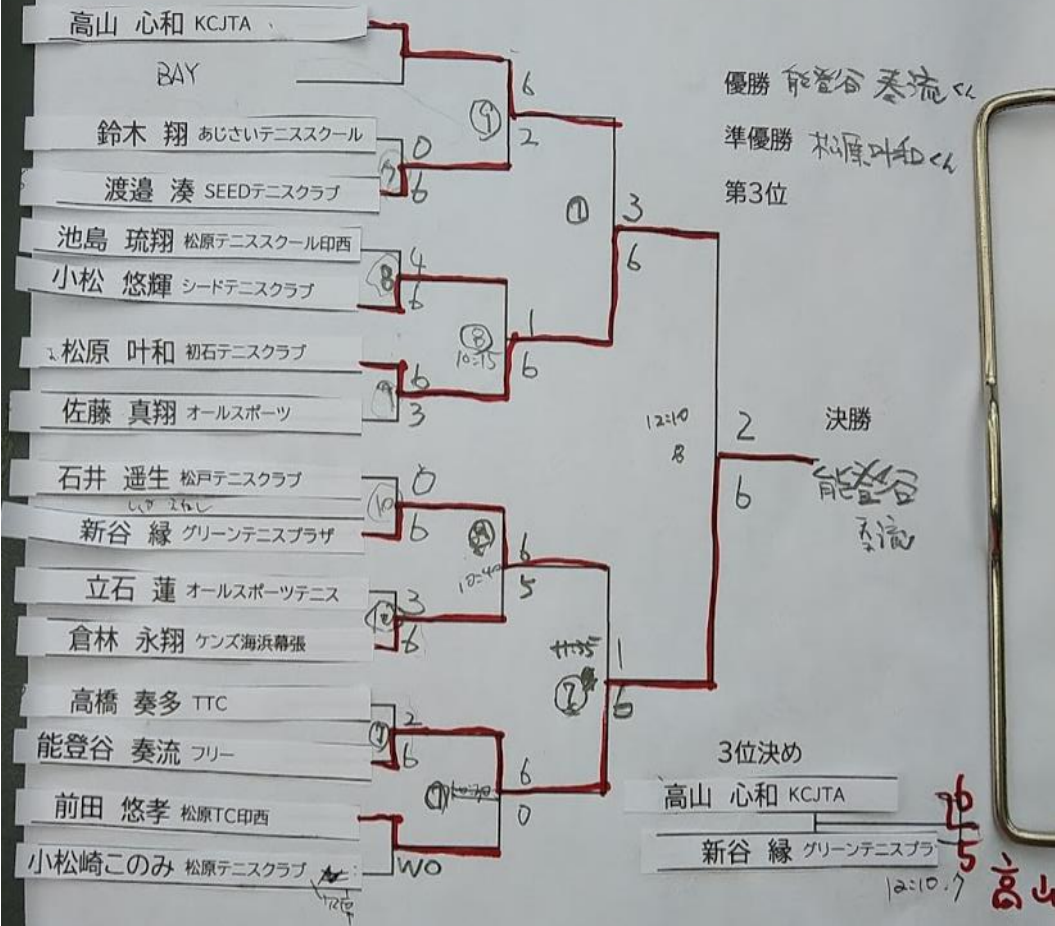 高山 心和 KCJTA
BAY
鈴木 翔 あじさいテニススクール
渡邉 湊 SEEDテニスクラブ
池島 琉翔 松原テニススクール印西
小松 悠輝 シードテニスクラブ
松原 叶和 初石テニスクラブ
佐藤 真翔 オールスポーツ
石井 遥生 松戸テニスクラブ
新谷 縁 グリーンテニスプラザ
立石 蓮 オールスポーツテニス
倉林 永翔 ケンズ海浜幕張
高橋 奏多 TTC
能登谷 奏流 フリー
前田 悠孝 松原TC印西
小松崎このみ 松原テニスクラブ
0
6
4
6
6
3
0
6
3
6
2
6
WO
⑨
6
2
⑧
10:15
1
6
6
5
10:40
6
0
①
3
6
⑦
1
6
12:10
8
2
6
優勝 能登谷 奏流くん
準優勝 松原叶和くん
第3位
決勝
能登谷
奏流
3位決め
高山 心和 KCJTA
6
新谷 縁 グリーンテニスプラ
5
12:10.7
高山